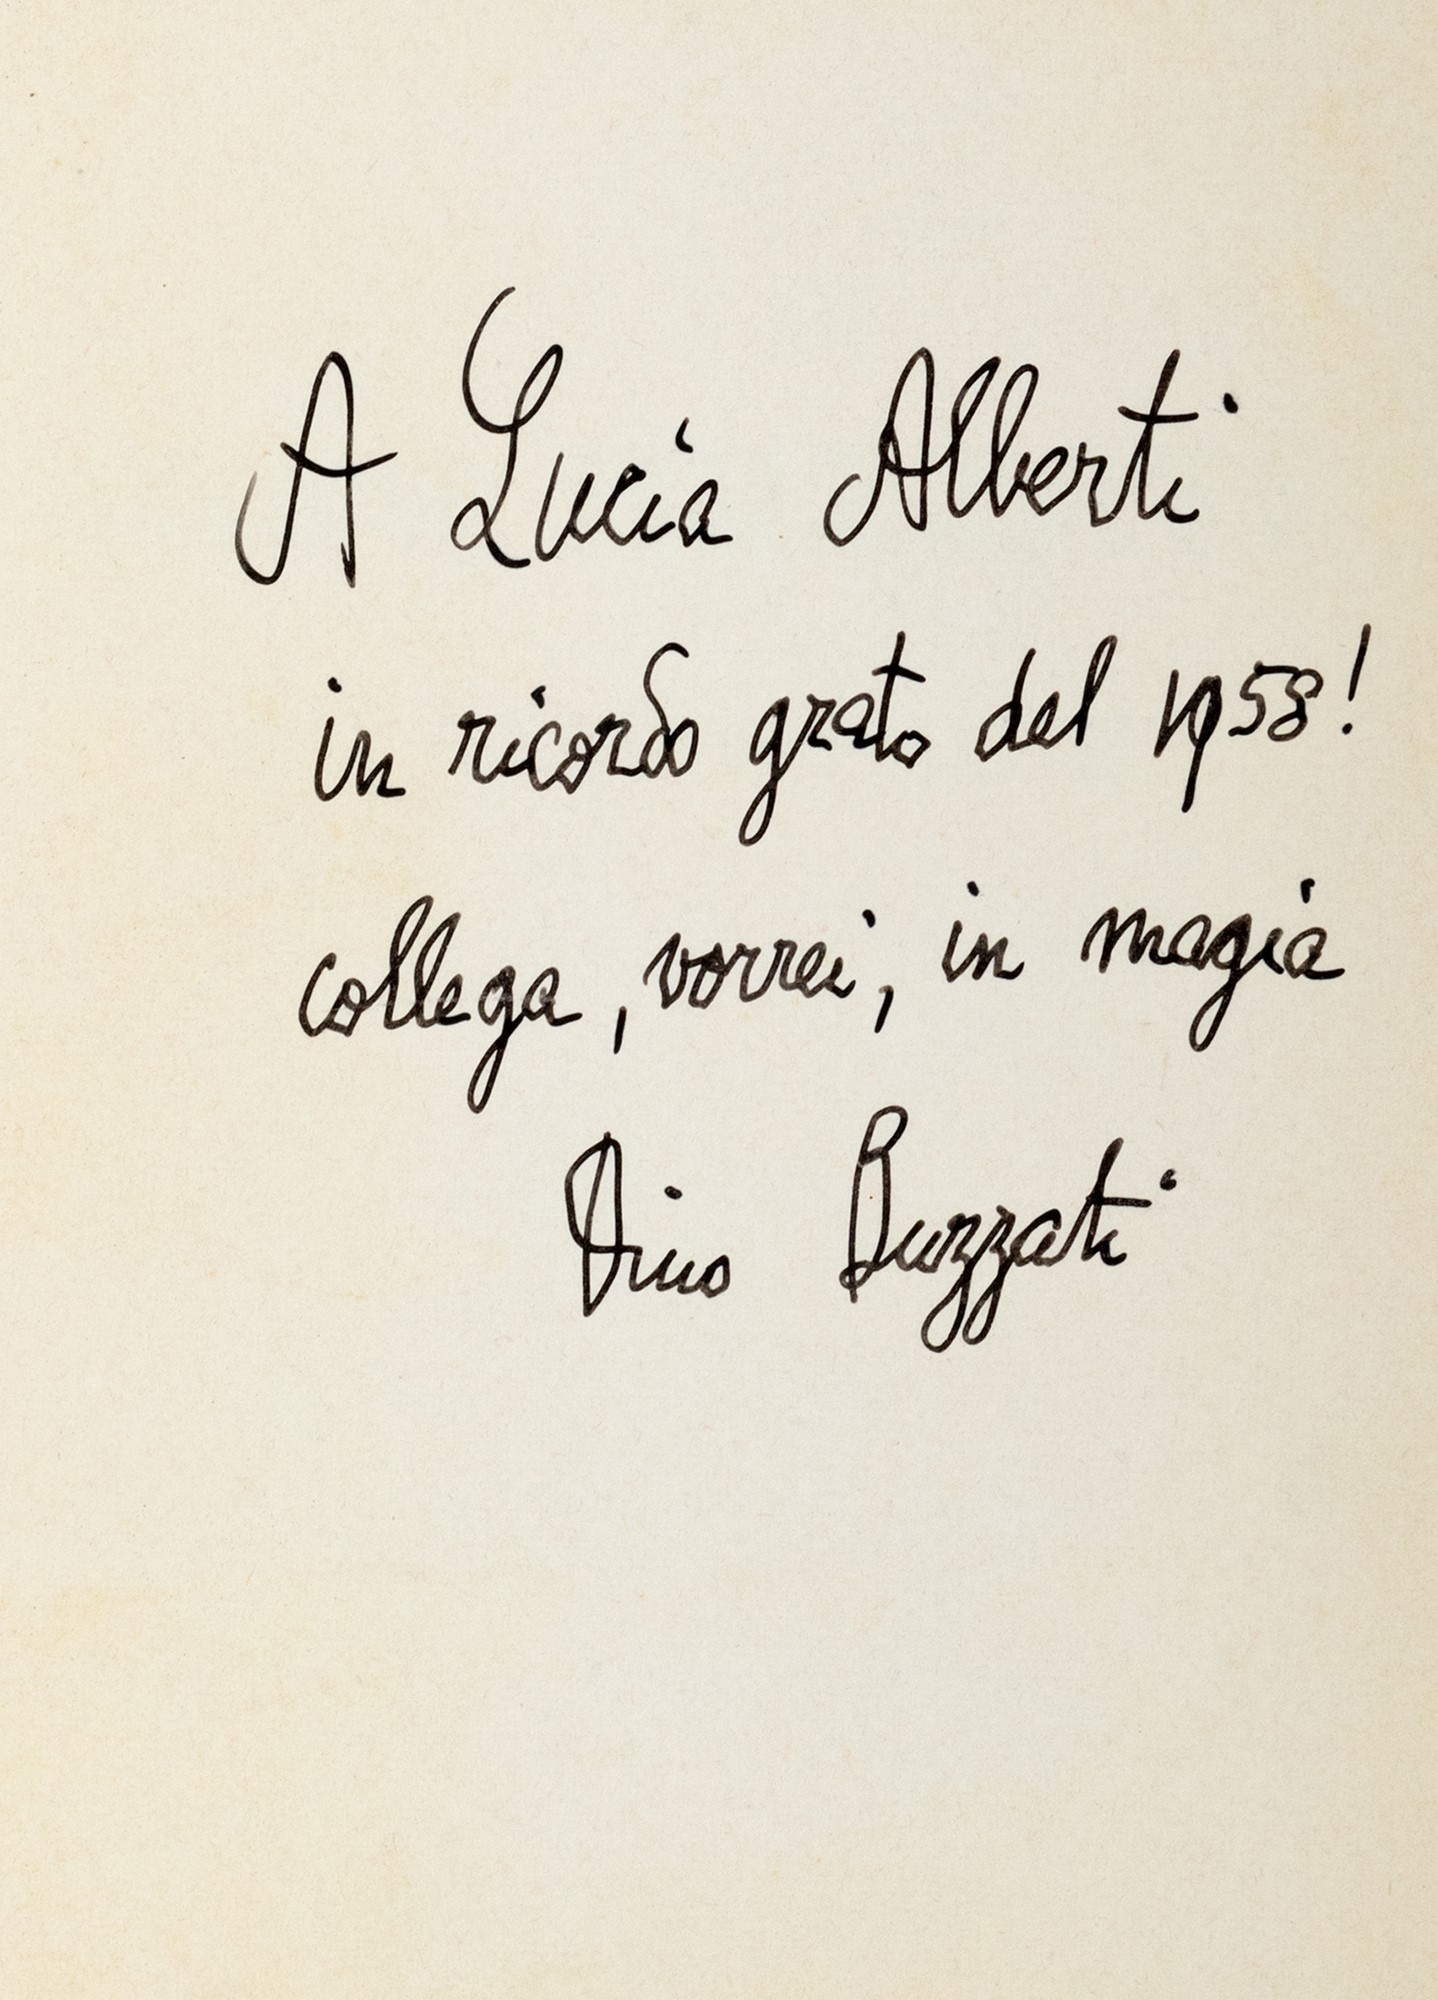 A Lucia Alberti
in ricordo grato del 1958!
collega, vorrei, in magia
Dino Buzzati